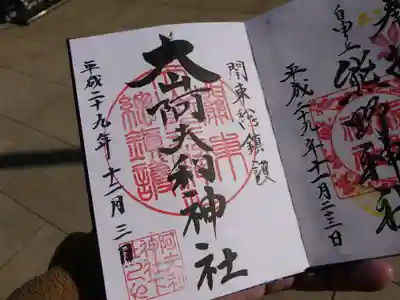 奉拝
熊野神社
平成二十九年十一月二十三日
関東総鎮護
大山阿夫利神社
平成二十九年十二月三日
関東総鎮護